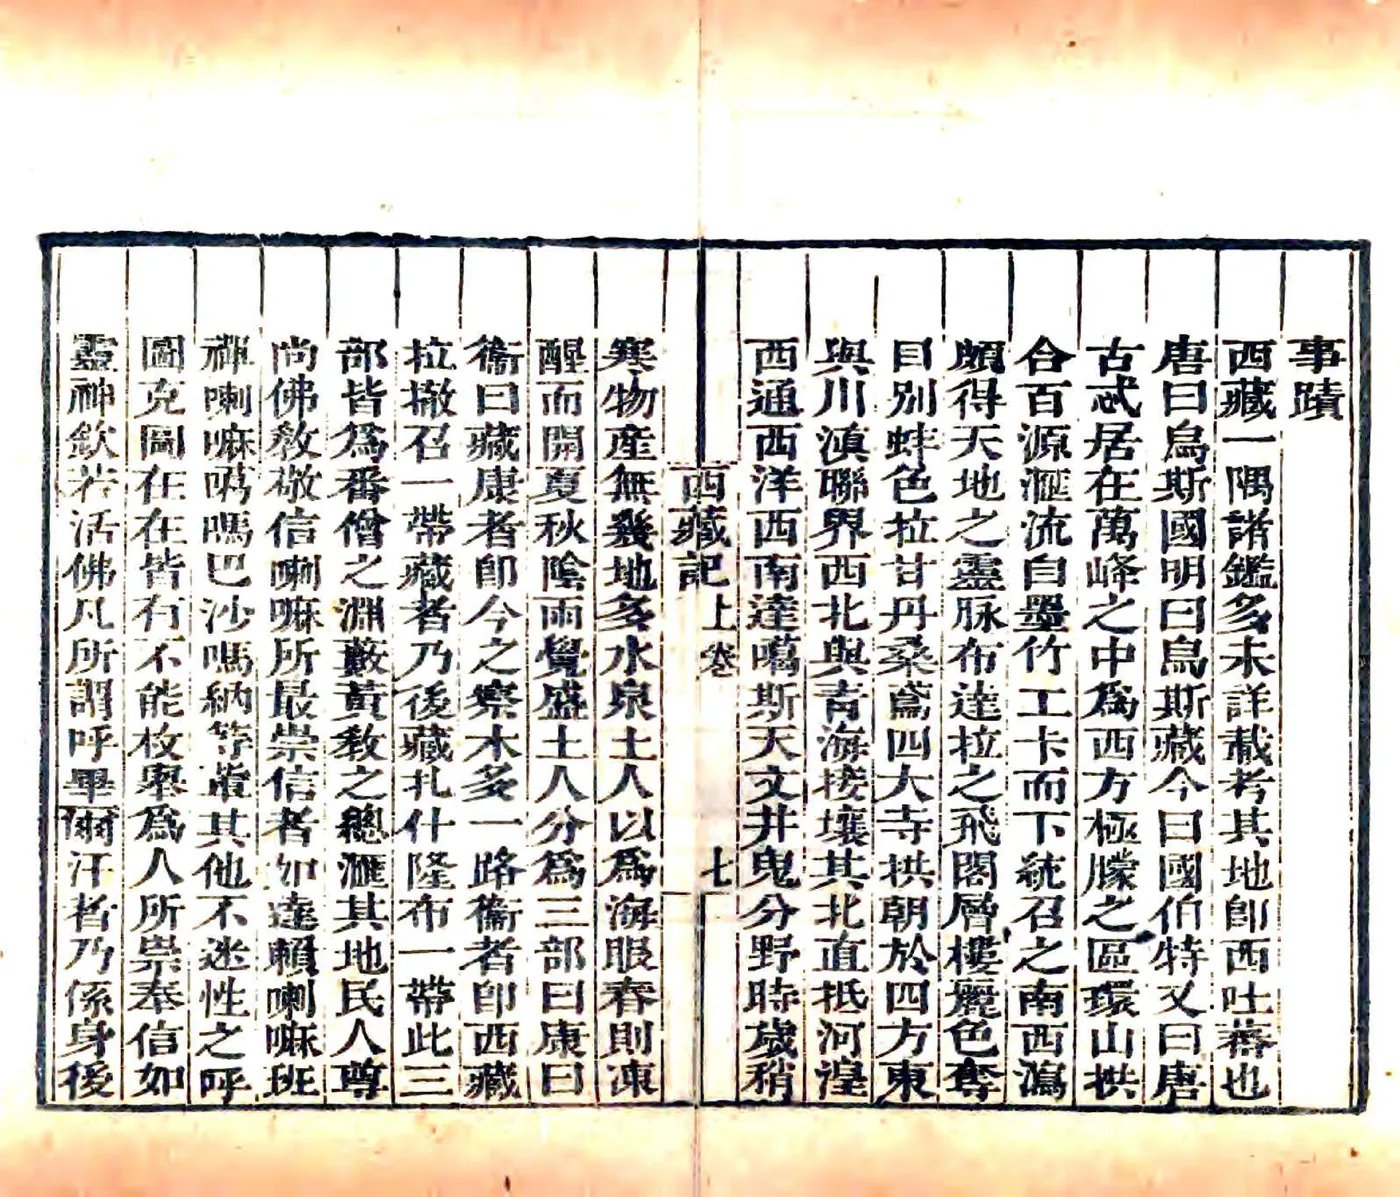 事蹟
西藏一隅諸鑑多未詳載考其地卽西吐蕃也
唐曰烏斯國明曰烏斯藏今曰國伯特又曰唐
古忒居在萬峰之中為西方極朦之區環山拱
合百源滙流自墨竹工卡而下統召之南西瀉
頗得天地之靈脉布達拉之飛閣層樓麗色奪
目別蚌色拉甘丹桑鳶四大寺拱朝於四方東
與川滇聯界西北與青海接壤其北直抵河湟
西通西洋西南達噶斯天文井鬼分野時歲稍
西藏記 上卷 七
寒物產無幾地多水泉土人以為海眼春則凍
醒而開夏秋陰雨覺盛土人分為三部曰康曰
衞曰藏康者卽今之察木多一路衞者卽西藏
拉撒召一帶藏者乃後藏扎什隆布一帶此三
部皆為番僧之淵藪黃教之總滙其地民人尊
尚佛教敬信喇嘛所最崇信者如達賴喇嘛班
禪喇嘛噶嗎巴沙嗎納等輩其他不迷性之呼
圖克圖在在皆有不能枚舉為人所崇奉信如
靈神欽若活佛凡所謂呼畢爾汗者乃係身後